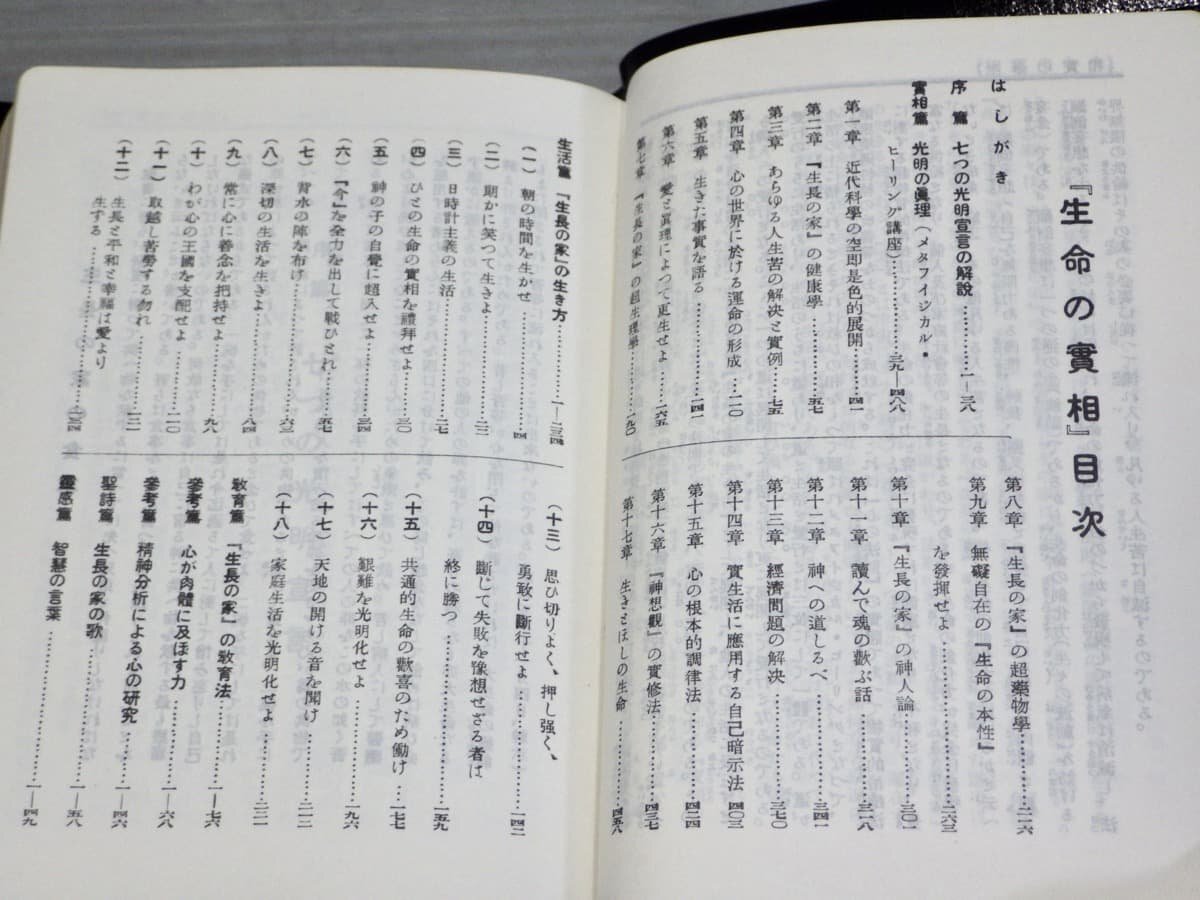 『生命の實相』目次
はしがき
序篇 七つの光明宣言の解說…………一―三八
實相篇 光明の眞理（メタフイジカル・
ヒーリング講座）…………三九―四八
第一章 近代科學の空卽是色的展開……四一
第二章 『生長の家』の健康學…………五七
第三章 あらゆる人生苦の解決と實例…七五
第四章 心の世界に於ける運命の形成…一二〇
第五章 生きた事實を語る…………一四一
第六章 愛と眞理によつて更生せよ……一六五
第七章 『生長の家』の超生理學………一九〇
第八章 『生長の家』の超藥物學………二一六
第九章 無礙自在の『生命の本性』
を發揮せよ…………二六三
第十章 『生長の家』の神人論…………三〇一
第十一章 讀んで魂の歡ぶ話…………三一八
第十二章 神への道しるべ…………三四一
第十三章 經濟問題の解決…………三七〇
第十四章 實生活に應用する自己暗示法 四〇三
第十五章 心の根本的調律法…………四二四
第十六章 『神想觀』の實修法…………四三七
第十七章 生きとほしの生命…………四五八
生活篇 『生長の家』の生き方…………一―二三四
（一） 朝の時間を生かせ…………四
（二） 朗かに笑つて生きよ…………二二
（三） 日時計主義の生活…………二七
（四） ひとの生命の實相を禮拜せよ……三〇
（五） 神の子の自覺に超入せよ…………三四
（六） 『今』を全力を出して戰ひとれ……五七
（七） 背水の陣を布け…………六三
（八） 深切の生活を生きよ…………八四
（九） 常に心に善念を把持せよ…………九八
（十） わが心の王國を支配せよ…………一一〇
（十一） 取越し苦勞する勿れ…………一二一
（十二） 生長と平和と幸福は愛より
生ずる…………一三四
（十三） 思ひ切りよく、押し强く、
勇敢に斷行せよ…………一四二
（十四） 斷じて失敗を豫想せざる者は
終に勝つ…………一五九
（十五） 共通的生命の歡喜のため働け…一七七
（十六） 艱難を光明化せよ…………一九六
（十七） 天地の開ける音を聞け…………二一二
（十八） 家庭生活を光明化せよ…………二二一
敎育篇 『生長の家』の敎育法…………一―七六
參考篇 心が肉體に及ぼす力…………一―六八
參考篇 精神分析による心の硏究…………一―四六
聖詩篇 生長の家の歌…………一―五八
靈感篇 智慧の言葉…………一―四九